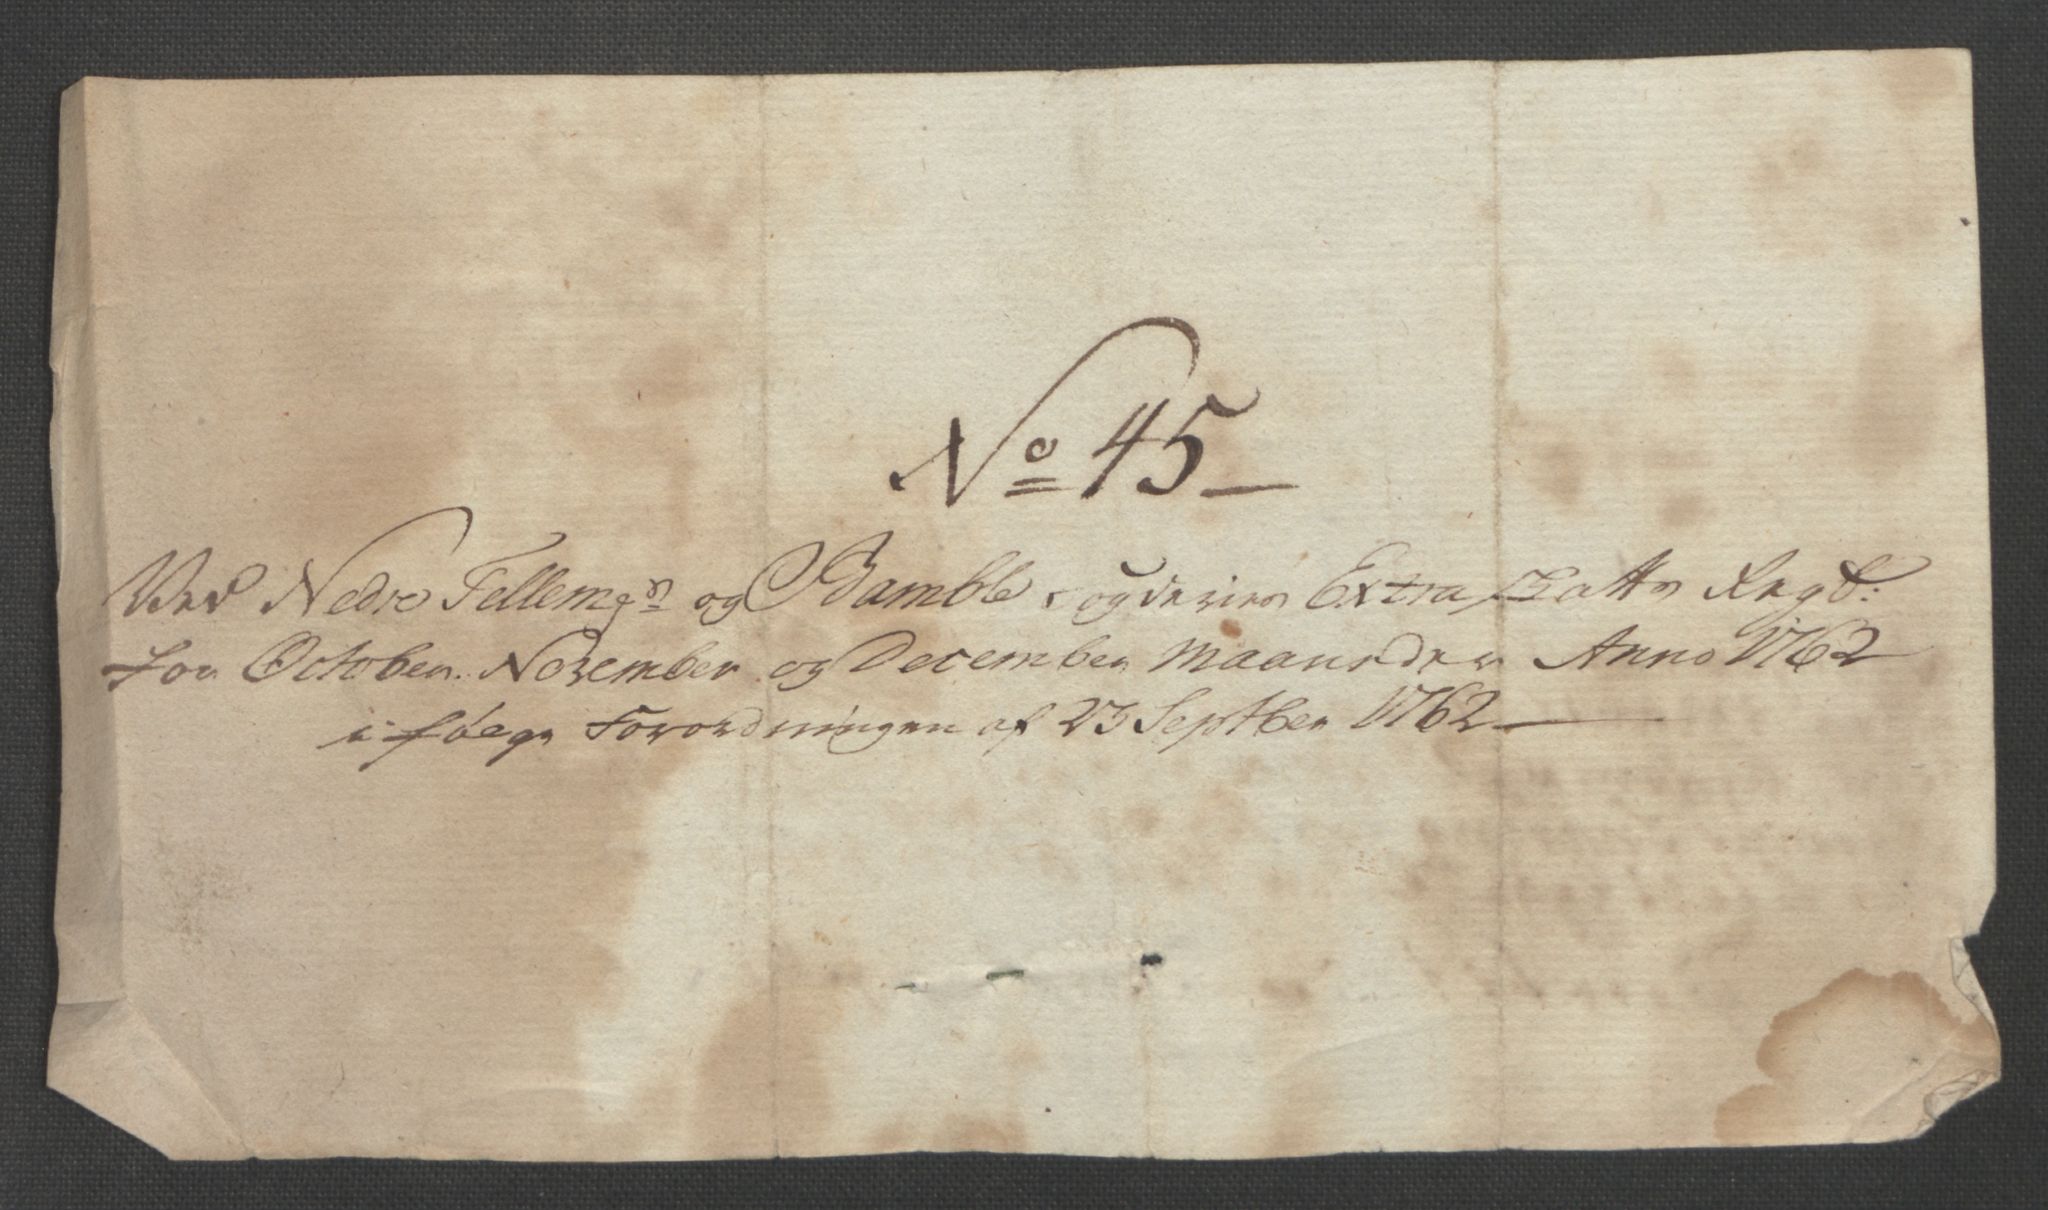 No 45
Ved Nedre Tellemgn og Bamble Fogderies Extra Skatts Regb:
for October. November og December Maaneder Anno 1762
ifølge Forordningen af 23 Septber 1762